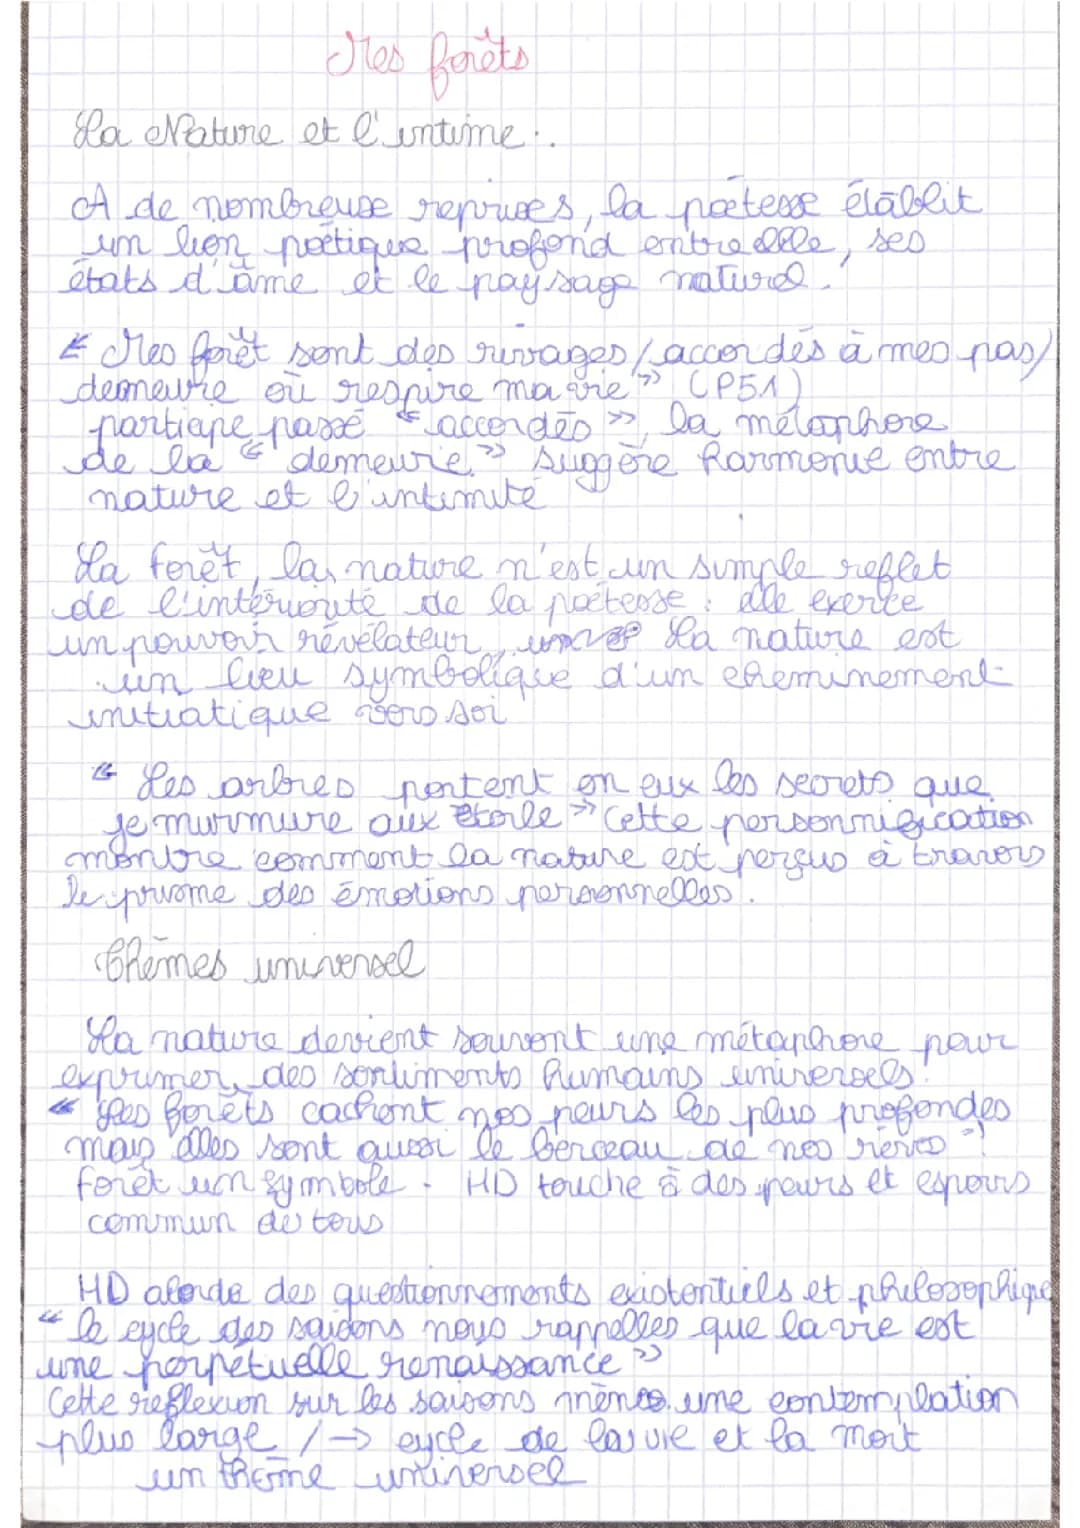 Mes forêts
La Nature et l'intime :
A de nombreuse reprises, la poétesse établit
un lien poétique profond entre elle, ses
états d'âme et le paysage naturel.
« Mes forêt sont des rivages / accordés à mes pas /
demeure où respire ma vie » (P51)
participe passé « accordés », la métaphore
de la « demeure » suggère harmonie entre
nature et l'intimité
La forêt, la nature n'est un simple reflet
de l'intériorité de la poétesse : elle exerce
un pouvoir révélateur, La nature est
un lieu symbolique d'un cheminement
initiatique vers soi
" Les arbres portent en eux les secrets que
je murmure aux étoile » Cette personnification
montre comment la nature est perçus à travers
le prisme des émotions personnelles.
Thèmes universel
La nature devient souvent une métaphore pour
exprimer des sentiments humains universels.
« Les forêts cachent nos peurs les plus profondes
mais elles sont aussi le berceau de nos rêves »
forêt un symbole. HD touche à des peurs et espoirs
commun de tous
HD aborde des questionnements existentiels et philosophique
" le cycle des saisons nous rappelles que la vie est
une perpétuelle renaissance »
Cette réflexion sur les saisons mènes une contemplation
plus large / → cycle de la vie et la mort
un thème universel